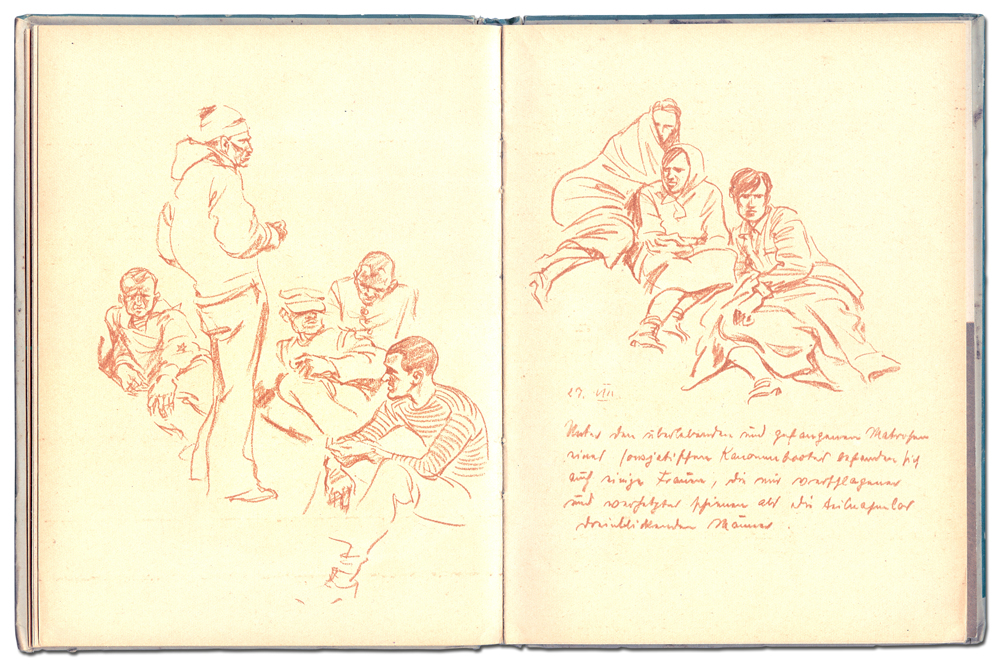 27. VIII.
Unter den überlebenden und gefangenen Matrosen
eines sowjetischen Kanonenbootes befanden sich
auch einige Frauen, die mir verschlagener
und verhetzter schienen als die teilnahmslos
dreinblickenden Männer.